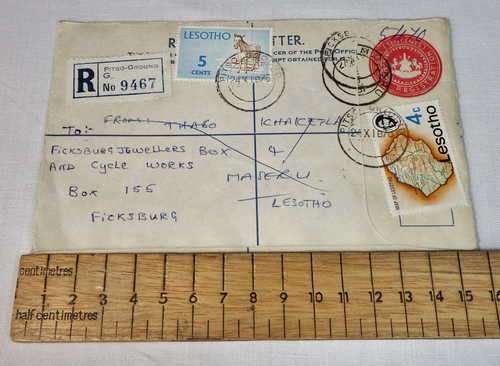 5/-/70
R TTER.
CER OF THE POST OFFIC
PT OBTAINED FOR
LESOTHO
5
CENTS
PITSO-GROUND
G.
R No 9467
24 X 1970
REGISTRATION
4c
Lesotho
FROM: THABO KHAKETLA
To:-
FICKSBURG JEWELLERS BOX 4
AND CYCLE WORKS
MASERU
BOX 155
LESOTHO
FICKSBURG
centimetres
1 2 3 4 5 6 7 8 9 10 11 12 13 14 15 16
half centimetres